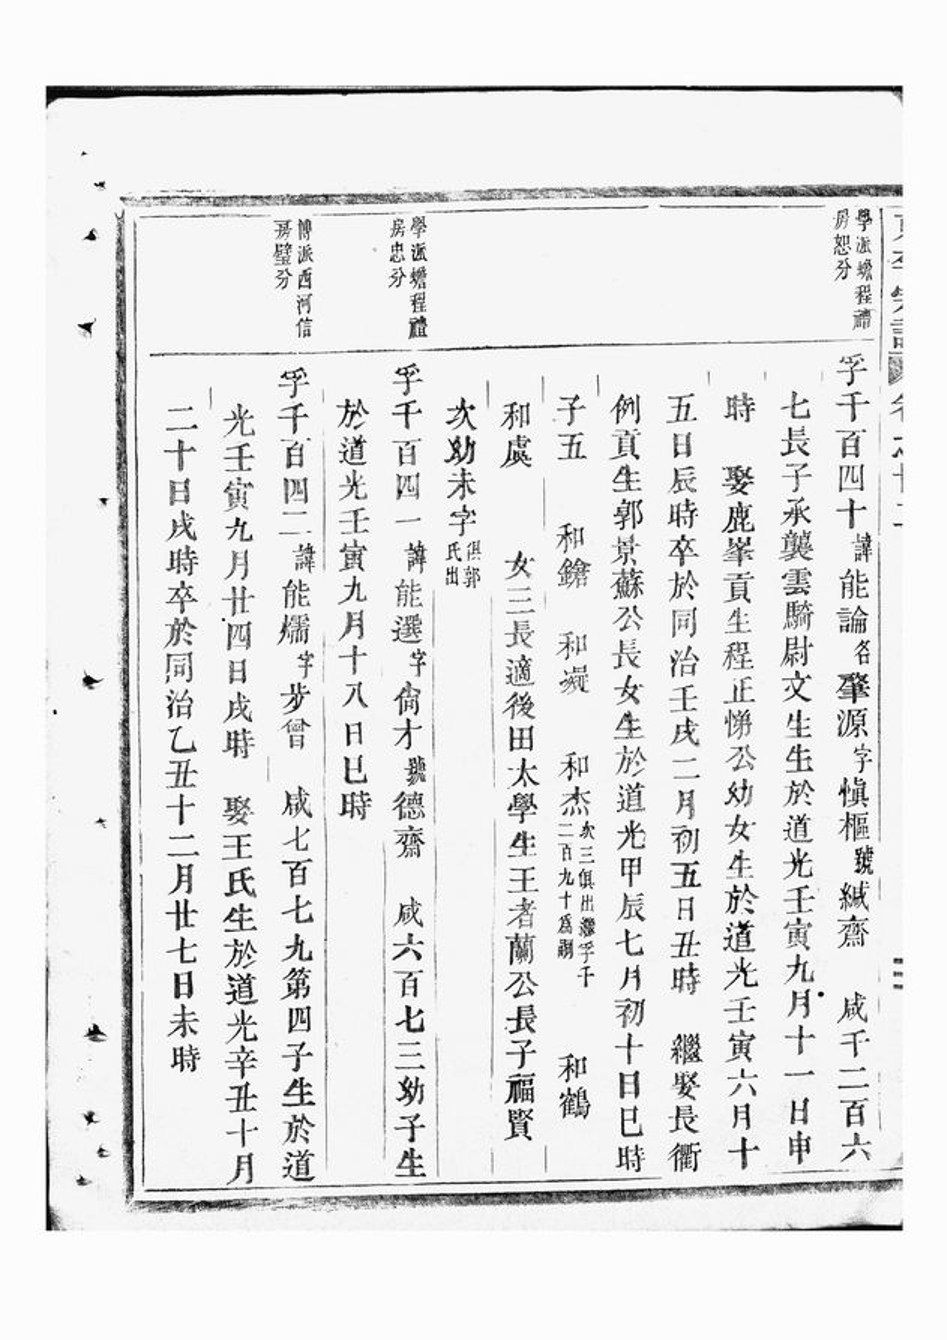 學派蟾程禮
房恕分
孚千百四十諱能論名肇源字慎樞號緘齋 咸千二百六
七長子承襲雲騎尉文生生於道光壬寅九月十一日申
時 娶鹿峯貢生程正悌公幼女生於道光壬寅六月十
五日辰時卒於同治壬戌二月初五日丑時 繼娶長衢
例貢生郭景蘇公長女生於道光甲辰七月初十日巳時
子五 和鎗 和凝 和杰次三俱出繼孚千二百九十爲嗣 和鶴
和虞 女三長適後田太學生王者蘭公長子福賢
次幼未字俱郭氏出
學派蟾程禮
房忠分
孚千百四一諱能選字尙才號德齋 咸六百七三幼子生
於道光壬寅九月十八日巳時
博派西河信
房璧分
孚千百四二諱能燸字步曾 咸七百七九第四子生於道
光壬寅九月廿四日戌時 娶王氏生於道光辛丑十月
二十日戌時卒於同治乙丑十二月廿七日未時